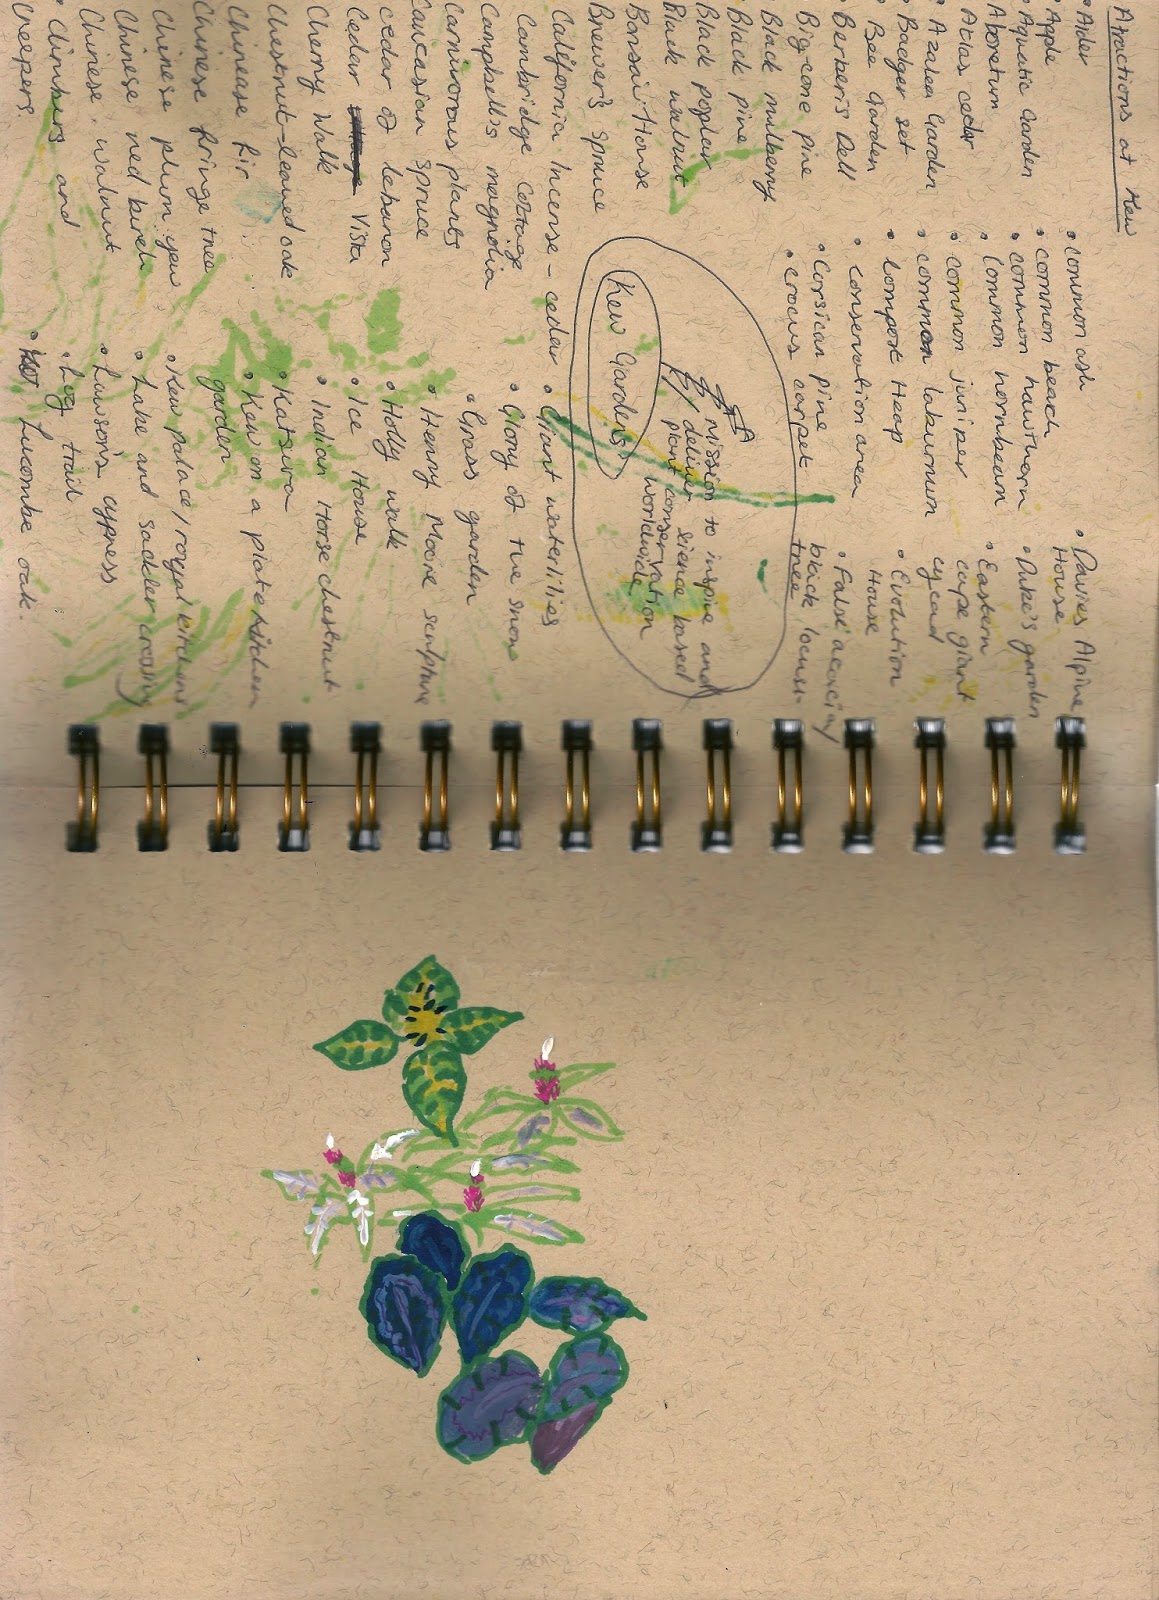 Attractions at Kew
• Alder
• Apple
• Aquatic Garden
Aboretum
Atlas cedar
• Azalea Garden
Badger set
• Bee Garden
• Berberis Dell
Big-cone pine
Black mulberry
• Black pine
Black poplar
Black walnut
Bonsai House
Brewer's spruce
California Incense-cedar
Cambridge Cottage
Campbell's magnolia
Carnivorous plants
Caucasian spruce
cedar of lebanon
Cedar Vista
Cherry Walk
Chestnut-leaved oak
Chinease fir
Chinese fringe tree
Chinese plum yew
Chinese red birch
Chinese walnut
• Climbers and
creepers.
• common ash
• common beach
• common hawthorn
• Common hornbeam
• common juniper
• common laburnum
• Compost Heap
• Conservation area
• Corsican pine
• crocus carpet
• Davies Alpine
House
• Duke's garden
• Eastern
cape giant
cycad
• Evolution
House
• False acacia/
black locust
tree
Kew Gardens
Mission to inspire and
deliver science based
plant conservation
worldwide
• Giant waterlilies
• Glory of the snow
• Grass garden
• Henry Moore sculpture
• Holly walk
• Ice House
• Indian Horse chestnut
• Katsura
• Kew on a plate kitchen
garden
• Kew palace/royal kitchens
• Lake and sackler crossing
• Lawson's cypress
• Log trail
• Lucombe oak.